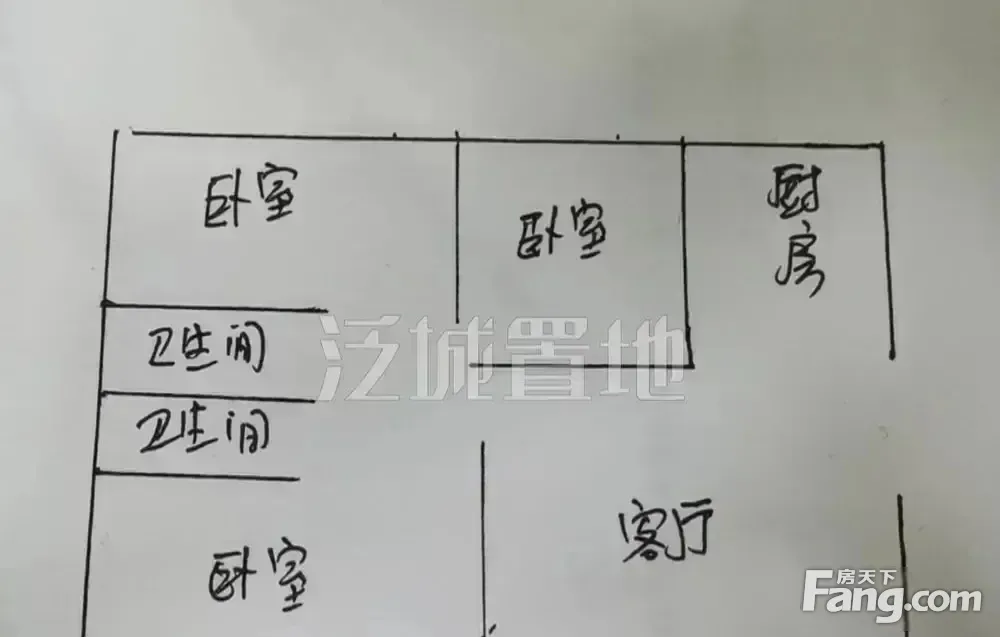 卧室
卧室
厨房
卫生间
泛城置地
卫生间
客厅
卧室
房天下
Fang.com